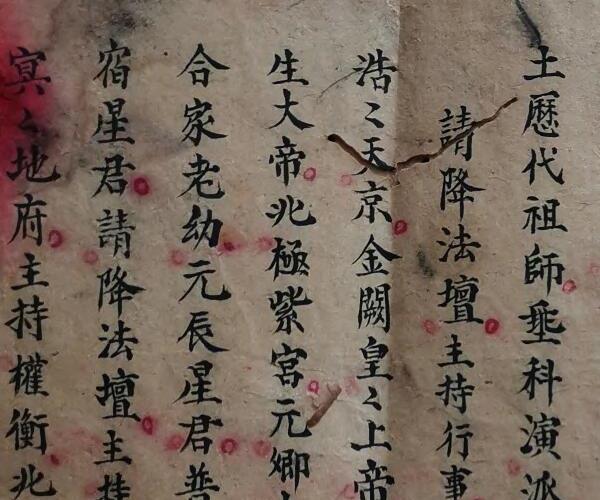 土歷代祖師垂科演派
請降法壇主持行事
浩〻天京金闕皇〻上帝
生大帝北極紫宮元卿
合家老幼元辰星君普
宿星君請降法壇主持
冥〻地府主持權衡北